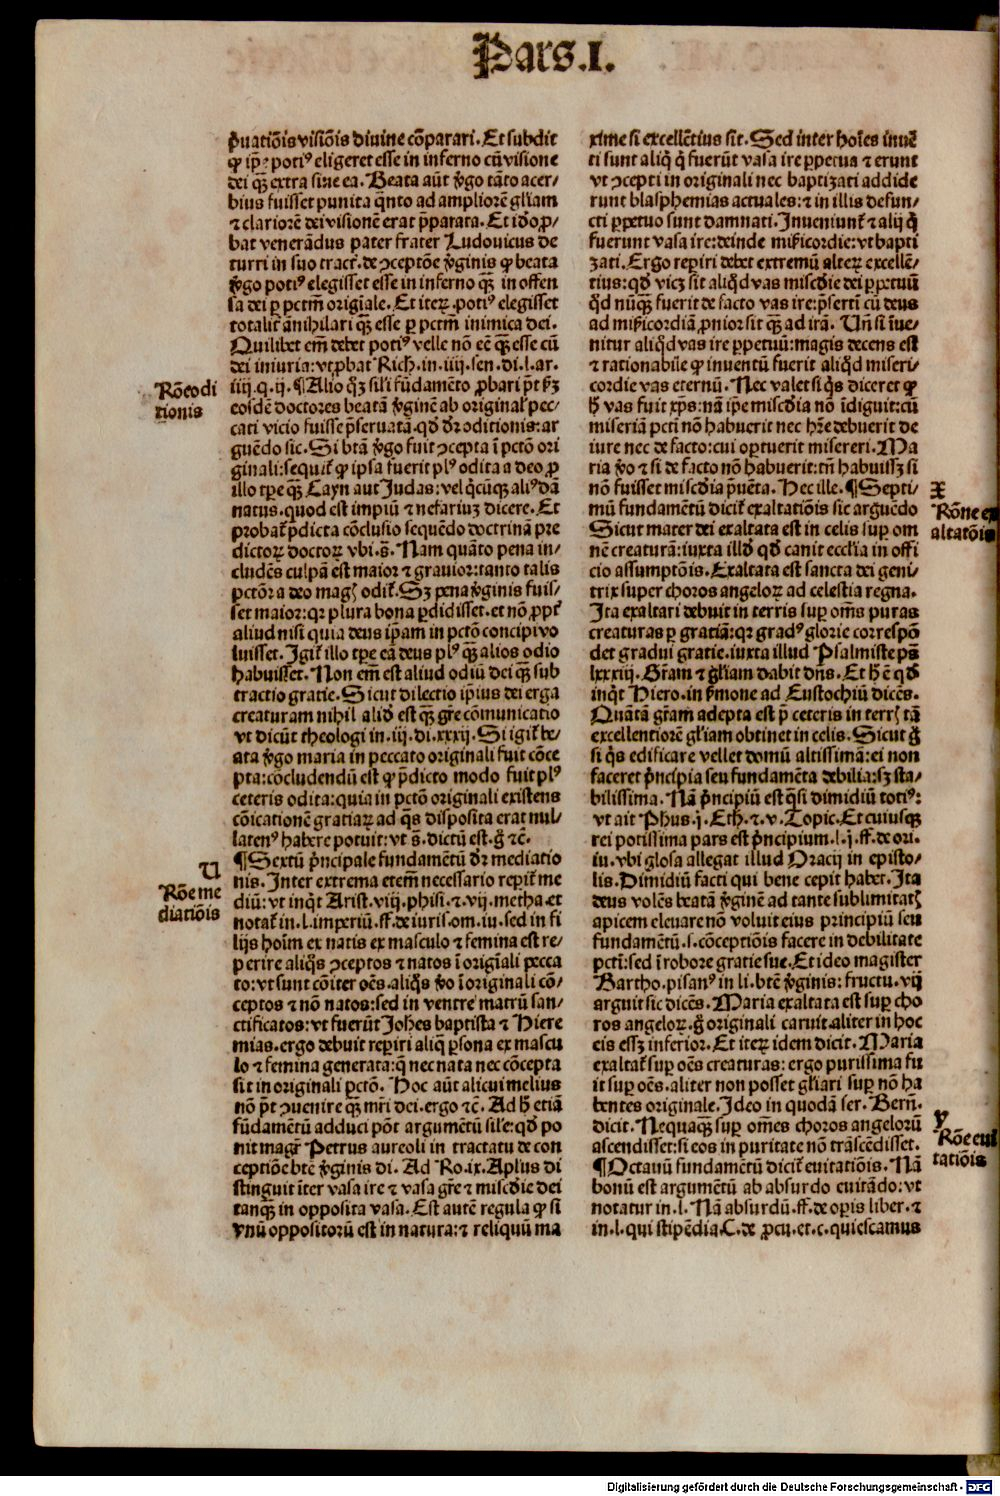 Pars.I.
p̄uatiōis visiōis divine cōparari. Et subdit
ꝙ ip̄e potiꝰ eligeret esse in inferno cū visione
dei qꝫ extra sine ea. Beata aūt v̄go tāto acer/
bius fuisset punita q̄nto ad ampliorē gl̄iam
⁊ clariorē dei visionē erat p̄parata. Et iđo ꝓ/
bat venerādus pater frater Ludovicus de
turri in suo tract̄. de ꝯceptōe v̄ginis ꝙ beata
v̄go potiꝰ elegisset esse in inferno qꝫ in offen
sa dei ꝑ pctm̄ origīale. Et iteꝝ potiꝰ elegisset
totalit̄ ānihilari qꝫ esse ꝑ pctm̄ inimica dei.
Quilibet em̄ debet potiꝰ velle nō eē qꝫ esse cū
dei iniuria: vt ꝓbat Rich. in. iiij. sen. di. l. ar.
iiij. q. ij. ¶ Alio qꝫ sil̓i fūdamēto ꝓbari p̄t ꝑꝫ
Rōe odi
tionis
eosdē doctores beatā v̄ginē ab original̓ pec/
cati vicio fuisse p̄servatā. qđ dr̄ oditionis: ar
guēdo sic. Si btā v̄go fuit ꝯcepta ī pctō ori
ginali: sequit̄ ꝙ ipsa fuerit plꝰ odita a deo ꝓ
illo tꝑe qꝫ Cayn aut Judas: vel q̄cūqꝫ aliꝰ dā
natus. quod est impiū ⁊ nefariuꝫ dicere. Et
probat̄ p̄dicta cōclusio sequēdo doctrinā pre
dictoꝝ doctoꝝ vbi. s̄. Nam quāto pena in/
cludēs culpā est maior ⁊ gravior: tanto talis
pctōr a deo mag̓ odit̄. Sꝫ pena v̄ginis fuis/
set maior: qꝛ plura bona ꝑdidisset. et nō ꝓpt̄
aliud nisi quia deus ip̄am in pctō concipi vo
luisset. Igit̄ illo tꝑe eā deus plꝰ qꝫ alios odio
habuisset. Non em̄ est aliud odiū dei qꝫ sub
tractio gratie. Sicut dilectio ip̄ius dei erga
creaturam nihil aliđ est qꝫ gr̄e cōmunicatio
vt dicūt theologi in. iij. di. xxxij. Si igit̄ be/
ata v̄go maria in peccato originali fuit cōce
pta: cōcludendū est ꝙ p̄dicto modo fuit plꝰ
ceteris odita: quia in pctō originali existens
cōicationē gratiaꝝ ad q̄s disposita erat nul/
latenꝰ habere potuit: vt s̄. dictū est. g̊ ⁊c̄.
¶ Sextū p̄ncipale fundamētū dr̄ mediatio
U
Rōe me
diatiōis
nis. Inter extrema etem̄ necessario reperit̄ me
diū: vt inq̄t Arist. viij. phisi. ⁊. vij. metha. et
notat̄ in. l. imperiū. ff. de iuris. om. iu. sed in fi
lijs hoīm ex natis ex masculo ⁊ femina est re/
perire aliq̄s ꝯceptos ⁊ natos ī origīali pecca
to: vt sunt cōiter oēs. aliq̄s v̊o ī originali cō/
ceptos ⁊ nō natos: sed in ventre matrū san/
ctificatos: vt fuerūt Joh̄es baptista ⁊ Hiere
mias. ergo debuit reperiri aliq̄ ꝑsona ex mascu
lo ⁊ femina generata: q̄ nec nata nec cōcepta
sit in originali pctō. Hoc aūt alicui melius
nō p̄t ꝯvenire qꝫ mr̄i dei. ergo ⁊c̄. Ad h̄ etiā
fūdamētū adduci pōt argumētū sil̓e: qđ po
nit magr̄ Petrus aureoli in tractatu de con
ceptiōe btē v̄ginis di. Ad Ro. ix. Ap̄lus di
stinguit īter vasa ire ⁊ vasa gr̄e ⁊ misc̄die dei
tanqꝫ in opposita vasa. Est autē regula ꝙ si
vnū oppositorū est in natura: ⁊ reliquū ma
xime si excellētius sit. Sed inter hoīes invē
ti sunt aliq̄ q̄ fuerūt vasa ire ꝑpetua ⁊ erunt
vt ꝯcepti in originali nec baptizati addide
runt blasphemias actuales: ⁊ in illis defun/
cti ꝑpetuo sunt damnati. Inveniunt̄ ⁊ alij q̄
fuerunt vasa ire: deinde mīcordie: vt bapti
zati. Ergo reperiri debet extremū alteꝝ excellē/
tius: qđ vicꝫ sit aliq̄d vas misc̄die dei ꝑpetuū
q̄d nūqꝫ fuerit de facto vas ire: p̄sertī cū deus
ad mīcordiā ꝓnior sit qꝫ ad irā. Un̄ si īve/
nitur aliq̄d vas ire ꝑpetuū: magis decens est
⁊ rationabile ꝙ inventū fuerit aliq̄d miseri/
cordie vas eternū. Nec valet si q̄s diceret ꝙ
h̄ vas fuit xp̄s: nā ip̄e misc̄dia nō īdiguit: cū
miseriā pctī nō habuerit nec hr̄e debuerit de
iure nec de facto: cui oꝑtuerit misereri. Ma
ria v̊o ⁊ si de facto nō habuerit: tn̄ habuissꝫ si
nō fuisset misc̄dia p̄vēta. Hec ille. ¶ Septi/
X
Rōne ex
altatōis
mū fundamētū dicit̄ exaltatiōis sic arguēdo
Sicut mater dei exaltata est in celis suꝑ om
nē creaturā: iuxta illđ qđ canit ecc̄lia in offi
cio assumptōis. Exaltata est sancta dei geni/
trix super choros angeloꝝ ad celestia regna.
Ita exaltari debuit in terris suꝑ om̄s puras
creaturas ꝑ gratiā: qꝛ gradꝰ glorie correspō
det gradui gratie. iuxta illud Psalmiste ps̄
lxxxiij. Gr̄am ⁊ gl̄iam dabit dn̄s. Et h̄ ē qđ
inq̄t Hiero. in ẜmone ad Eustochiū dicēs.
Quātā gr̄am adepta est p̄ ceteris in terr̓ tā
excellentiorē gl̄iam obtinet in celis. Sicut g̊
si q̄s edificare vellet domū altissimā: ei non
faceret p̄ncipia seu fundamēta debilia: sꝫ sta/
bilissima. Nā p̄ncipiū est q̄si dimidiū totiꝰ:
vt ait Phus. j. Eth. ⁊. v. Topic. Et cuiusqꝫ
rei potissima pars est p̄ncipium. l. j. ff. de ori.
iu. vbi glosa allegat illud Oracij in episto/
lis. Dimidiū facti qui bene cepit habet. Ita
deus volēs beatā v̄ginē ad tante sublimitat̓
apicem elevare nō voluit eius principiū seu
fundamētū. s. cōceptiōis facere in debilitate
pctī: sed ī robore gratie sue. Et ideo magister
Bartho. pisanꝰ in li. btē v̄ginis: fructu. vij
arguit sic dicēs. Maria exaltata est suꝑ cho
ros angeloꝝ. g̊ originali caruit. aliter in hoc
eis essꝫ inferior. Et iteꝝ idem dicit. Maria
exaltat̄ suꝑ oēs creaturas: ergo purissima fu
it suꝑ oēs. aliter non posset gl̄iari suꝑ nō ha
bentes originale. Ideo in quodā ser. Bern̄.
dicit. Nequaqꝫ suꝑ om̄es choros angelorū
ascendisset: si eos in puritate nō trāscēdisset.
y
Rōe evi
tatiōis
¶ Octavū fundamētū dicit̄ evitatiōis. Nā
bonū est argumētū ab absurdo evitādo: vt
notatur in. l. Nā absurdū. ff. de oꝑis liber. ⁊
in. l. qui stipēdia. C. de ꝓcu. et. c. quiescamus
Digitalisierung gefördert durch die Deutsche Forschungsgemeinschaft - DFG